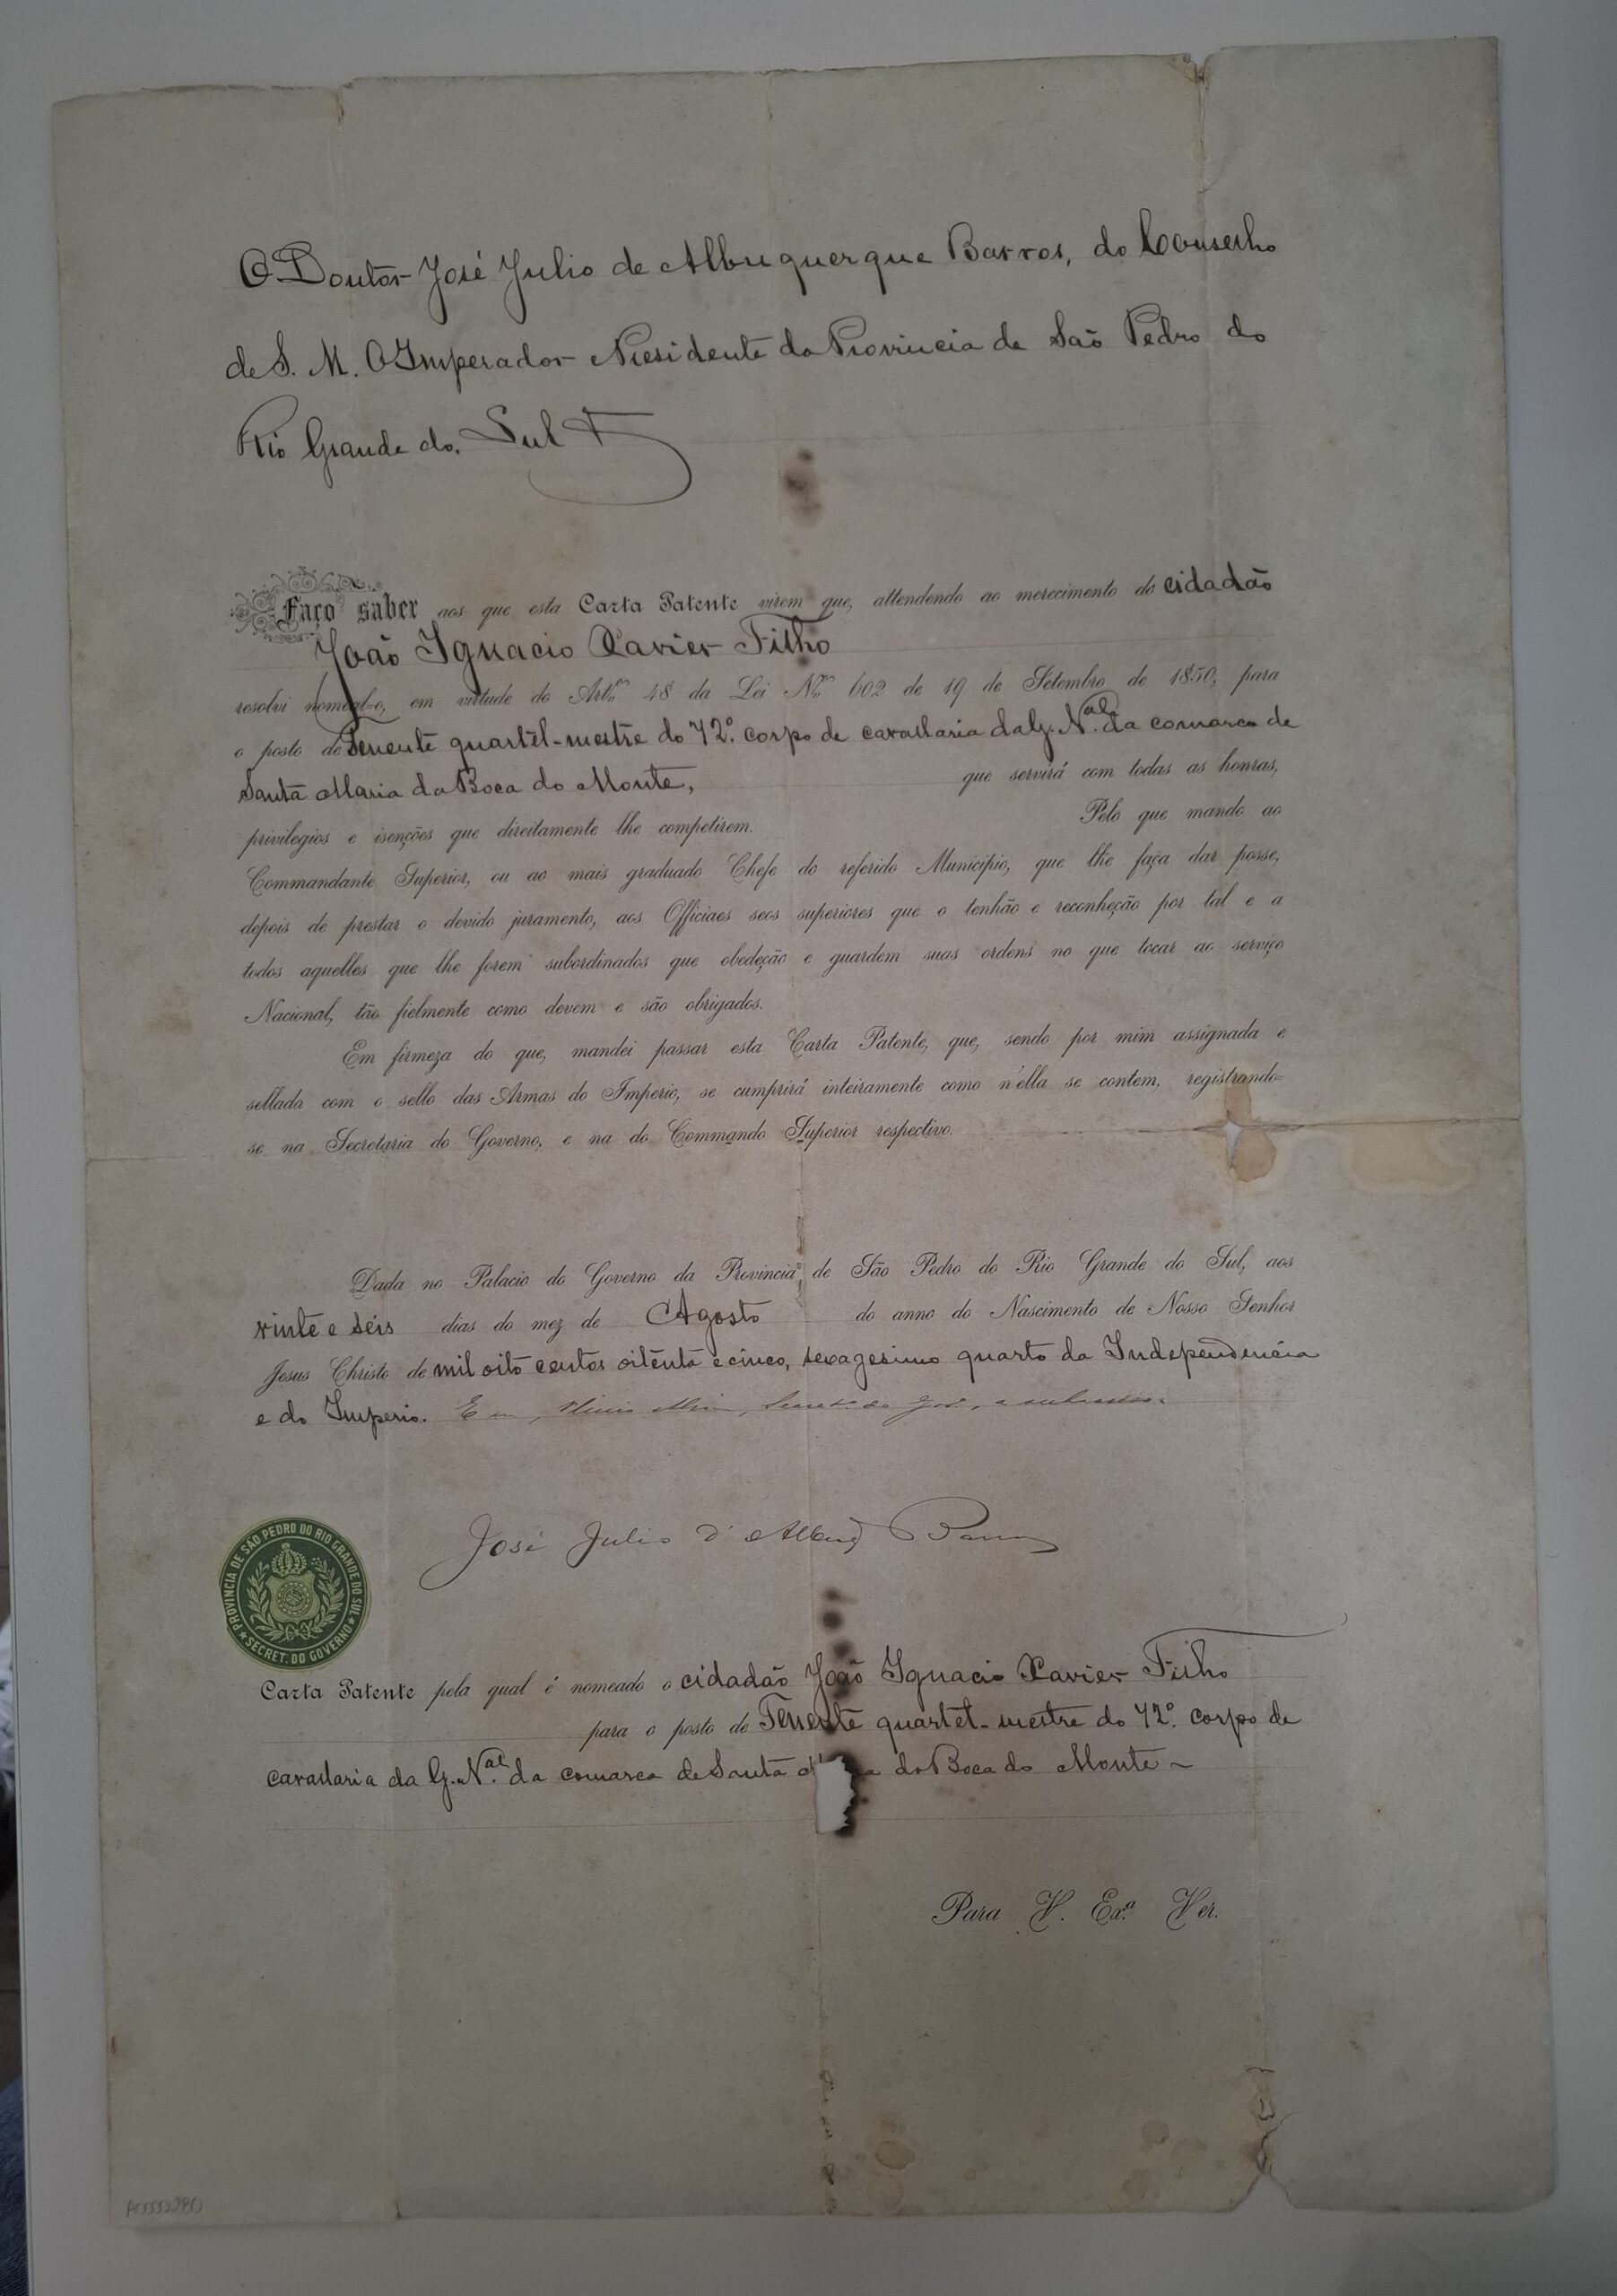 O Doutor José Julio de Albuquerque Barros, do Conselho
de S. M. O Imperador Presidente da Provincia de São Pedro do
Rio Grande do Sul
Faço saber aos que esta Carta Patente virem que, attendendo ao merecimento do cidadão
João Ignacio Xavier Filho
resolvi nomeal-o, em virtude do Artº 48 da Lei Nº 602 de 19 de Setembro de 1850, para
o posto de Tenente quartel-mestre do 72º. corpo de cavallaria da G. Nal. da comarca de
Santa Maria da Boca do Monte, que servirá com todas as honras,
privilegios e isenções que direitamente lhe competirem. Pelo que mando ao
Commandante Superior, ou ao mais graduado Chefe do referido Municipio, que lhe faça dar posse,
depois de prestar o devido juramento, aos Officiaes seos superiores que o tenhão e reconheção por tal e a
todos aquelles que lhe forem subordinados que obedeção e guardem suas ordens no que tocar ao serviço
Nacional, tão fielmente como devem e são obrigados.
Em firmeza do que, mandei passar esta Carta Patente, que, sendo por mim assignada e
sellada com o sello das Armas do Imperio, se cumprirá inteiramente como n'ella se contem, registrando-
se na Secretaria do Governo, e na do Commando Superior respectivo.
Dada no Palacio do Governo da Provincia de São Pedro do Rio Grande do Sul, aos
vinte e seis dias do mez de Agosto do anno do Nascimento de Nosso Senhor
Jesus Christo de mil oito centos oitenta e cinco, sexagesimo quarto da Independencia
e do Imperio. Eu,
José Julio d'Albuqe Barros
PROVINCIA DE SÃO PEDRO DO RIO GRANDE DO SUL
SECRET. DO GOVERNO
Carta Patente pela qual é nomeado o cidadão João Ignacio Xavier Filho
para o posto de Tenente quartel-mestre do 72º. corpo de
cavallaria da G. Nal. da comarca de Santa da Boca do Monte
Para V. Exª Ver.
A0000280